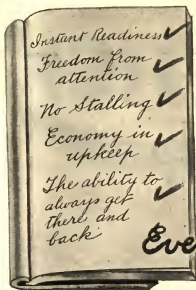 Instant Readiness
Freedom from
attention
No Stalling
Economy in
upkeep
The ability to
always get
there and
back
Eve